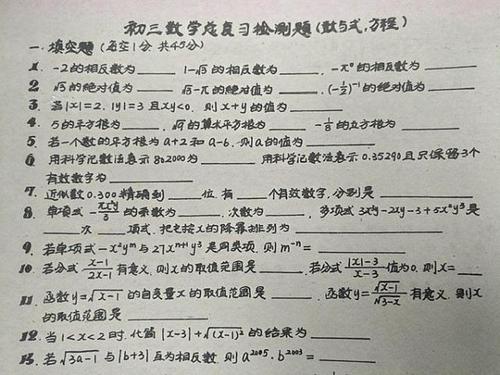 初三数学总复习检测题(数与式,方程)
一、填空题(每空1分 共45分)
1. -2的相反数为____ 1-√5的相反数为____, -π⁰的相反数为____
2. √5的绝对值为____ √5-π的绝对值为____,(-1/2)⁻¹的绝对值为____
3. 若|x|=2, |y|=3 且xy<0, 则x+y的值为____
4. 5的平方根为____, √9的算术平方根为____ -1/8的立方根为____
5. 若一个数的平方根为a+2和a-6,则a的值为____
6. 用科学记数法表示802000为____ 用科学记数法表示0.35290且只保留3个
有效数字为____
7. 近似数0.300精确到____位,有____个有效数字,分别是____
8. 单项式-πx²y/3的系数为____,次数为____, 多项式3x²y-2xy-3+5x²y³是
____次____项式,把它按x的降幂排列为____
9. 若单项式-x²yᵐ与27xⁿ⁺¹y³是同类项,则m⁻ⁿ=____
10. 若分式 x-1/2x-1 有意义,则x的取值范围是____.若分式 |x|-3/x-3 值为0,则x=____
11. 函数y=√x-1的自变量x的取值范围是____. 函数y=√x-1/√3-x有意义,则x
的取值范围是____
12. 当1<x<2时,化简|x-3|+√(x-1)²的结果为____
13. 若√3a-1与|b+3|互为相反数,则a²⁰⁰⁵·b²⁰⁰³=____